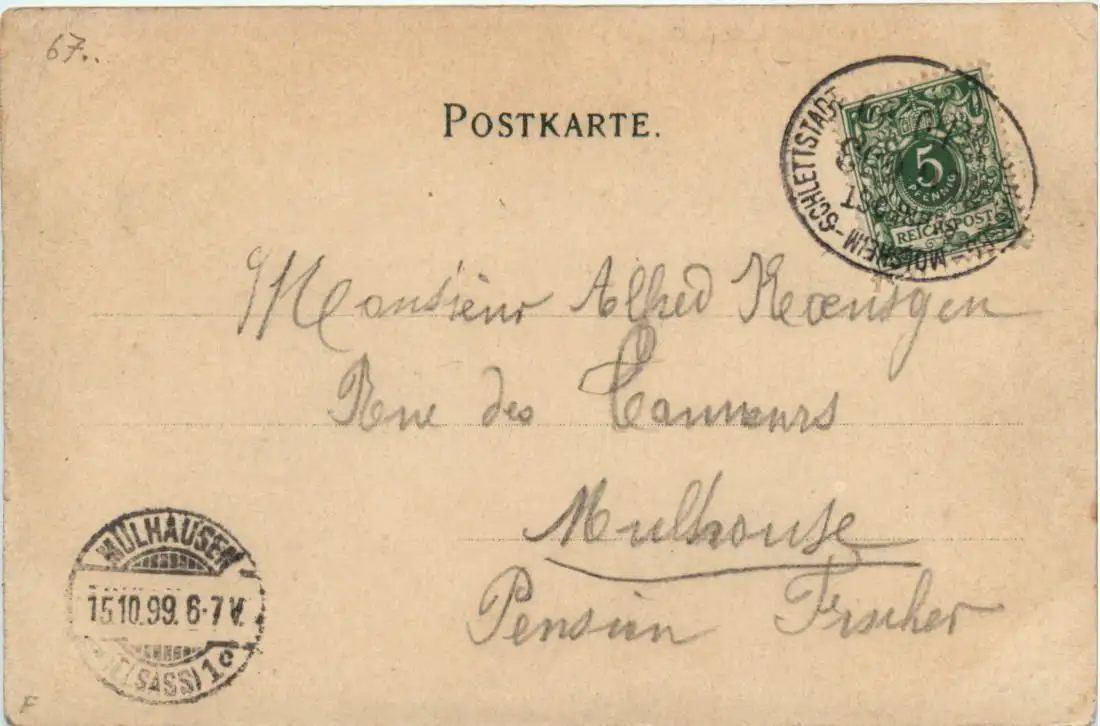 67..
POSTKARTE.
SCHLETTSTADT
MOLSHEIM-
5
PFENNIG
REICHSPOST
Monsieur Alfred Koensgen
Rue des Tanneurs
Mulhouse
Pension Fischer
MÜLHAUSEN
15.10.99. 6-7 V.
(ELSASS) 1c
F